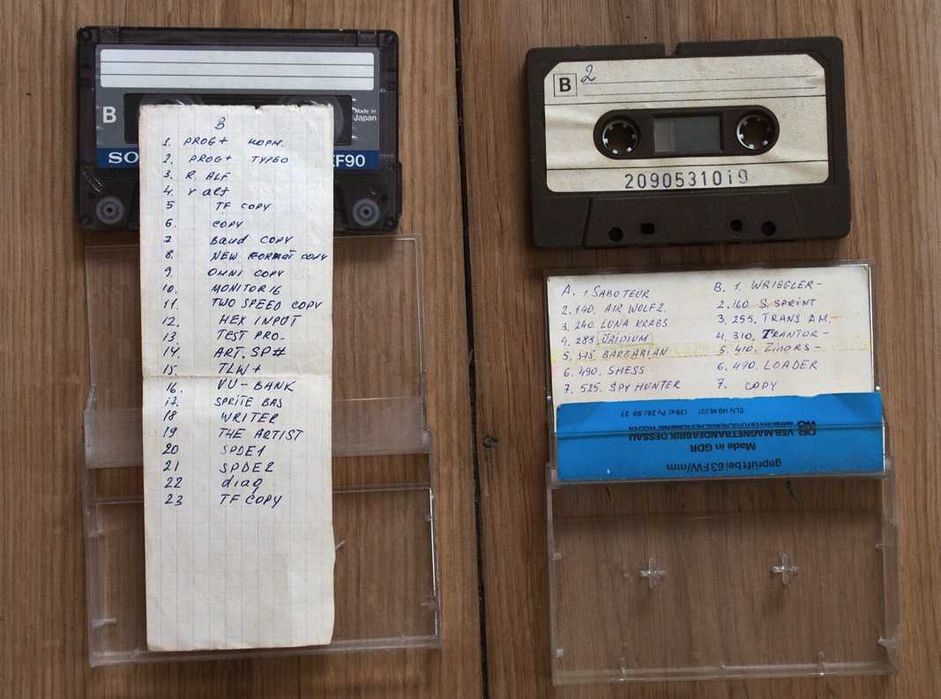 B
Made in
Japan
SO
EF90
B
1. PROG+ НОРМ.
2. PROG+ ТУРБО
3. R. ALF
4. r alf
5 TF COPY
6. COPY
7 Baud COPY
8. NEW FORMAT COPY
9. OMNI COPY
10. MONITOR16
11. TWO SPEED COPY
12. HEX INPUT
13. TEST PRO-
14. ART. SP#
15. TLW+
16. VU-BANK
17. SPRITE BAS
18 WRITER
19 THE ARTIST
20 SPDE1
21 SPDE2
22 diag
23 TF COPY
B 2
2090531019
A. 1. SABOTEUR
2. 140. AIR WOLF2.
3. 240. LUNA KRABS
4. 283 URIDIUM
5. 375 BARBARIAN
6. 490. SHESS
7. 525. SPY HUNTER
B. 1. WRIGGLER-
2. 160. S. SPRINT
3. 255. TRANS AM.
4. 310. TRANTOR-
5. 410. ZINGRS-
6. 490. LOADER
7. COPY
geprüft bei 63 FW/mm
Made in GDR
VEB MAGNETBANDFABRIK DESSAU